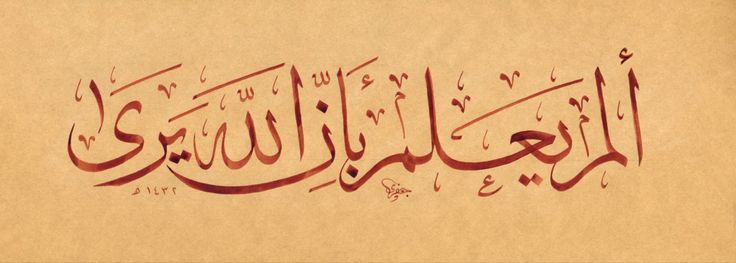 ألم يعلم بأنّ الله يرى
١٤٣٢ هـ